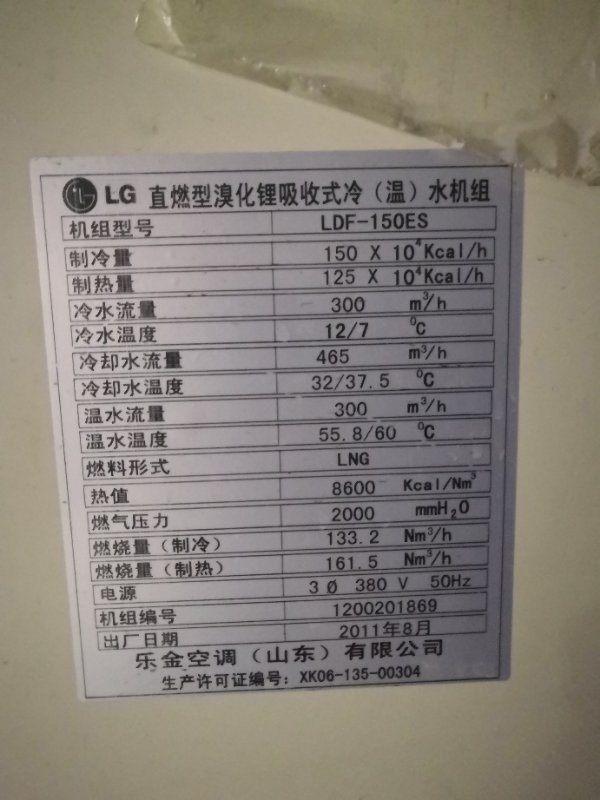 LG 直燃型溴化锂吸收式冷（温）水机组
机组型号 LDF-150ES
制冷量 150 X 10⁴Kcal/h
制热量 125 X 10⁴Kcal/h
冷水流量 300 m³/h
冷水温度 12/7 ⁰C
冷却水流量 465 m³/h
冷却水温度 32/37.5 ⁰C
温水流量 300 m³/h
温水温度 55.8/60 ⁰C
燃料形式 LNG
热值 8600 Kcal/Nm³
燃气压力 2000 mmH₂O
燃烧量（制冷） 133.2 Nm³/h
燃烧量（制热） 161.5 Nm³/h
电源 3 Ø 380 V 50Hz
机组编号 1200201869
出厂日期 2011年8月
乐金空调（山东）有限公司
生产许可证编号：XK06-135-00304